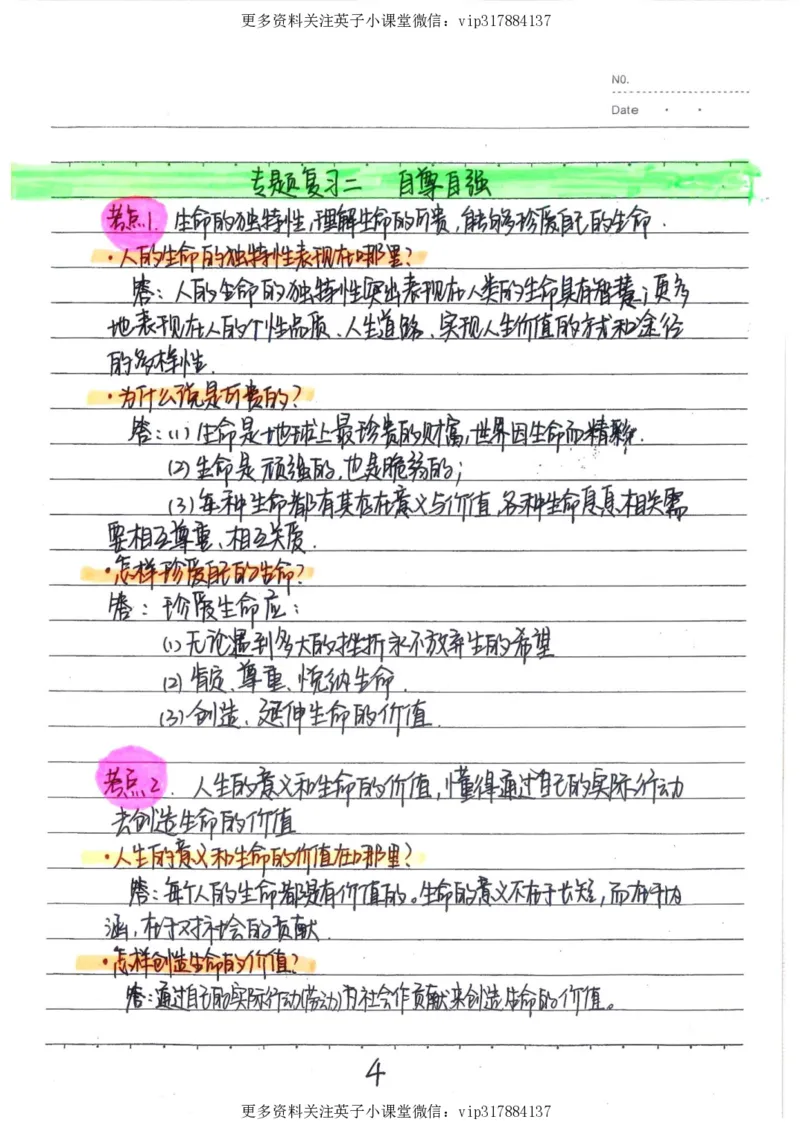 更多资料关注英子小课堂微信：vip317884137
NO.
Date
专题复习二 自尊自强
考点1. 生命的独特性,理解生命的可贵,能够珍爱自己的生命.
·人的生命的独特性表现在哪里?
答：人的生命的独特性突出表现在人类的生命具有智慧；更多
地表现在人的个性品质、人生道路、实现人生价值的方式和途径
的多样性.
·为什么说是可贵的?
答:(1)生命是地球上最珍贵的财富,世界因生命而精彩.
(2)生命是顽强的,也是脆弱的;
(3)每种生命都有其存在意义与价值,各种生命息息相关需
要相互尊重、相互关爱.
·怎样珍爱自己的生命?
答：珍爱生命应:
(1)无论遇到多大的挫折永不放弃生的希望
(2)肯定、尊重、悦纳生命.
(3)创造、延伸生命的价值.
考点2. 人生的意义和生命的价值,懂得通过自己的实际行动
去创造生命的价值
·人生的意义和生命的价值在哪里?
答:每个人的生命都是有价值的。生命的意义不在于长短,而在于内
涵,在于对社会的贡献.
·怎样创造生命的价值?
答:通过自己的实际行动(劳动)为社会作贡献来创造生命的价值。
4
更多资料关注英子小课堂微信：vip317884137